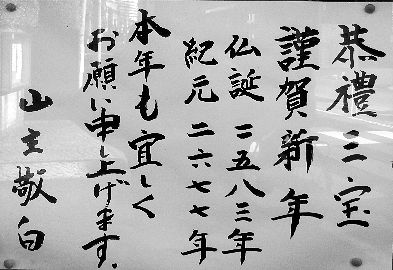 恭禮三宝
謹賀新年
仏誕 二五八三年
紀元 二六七七年
本年も宜しく
お願い申し上げます。
山主敬白